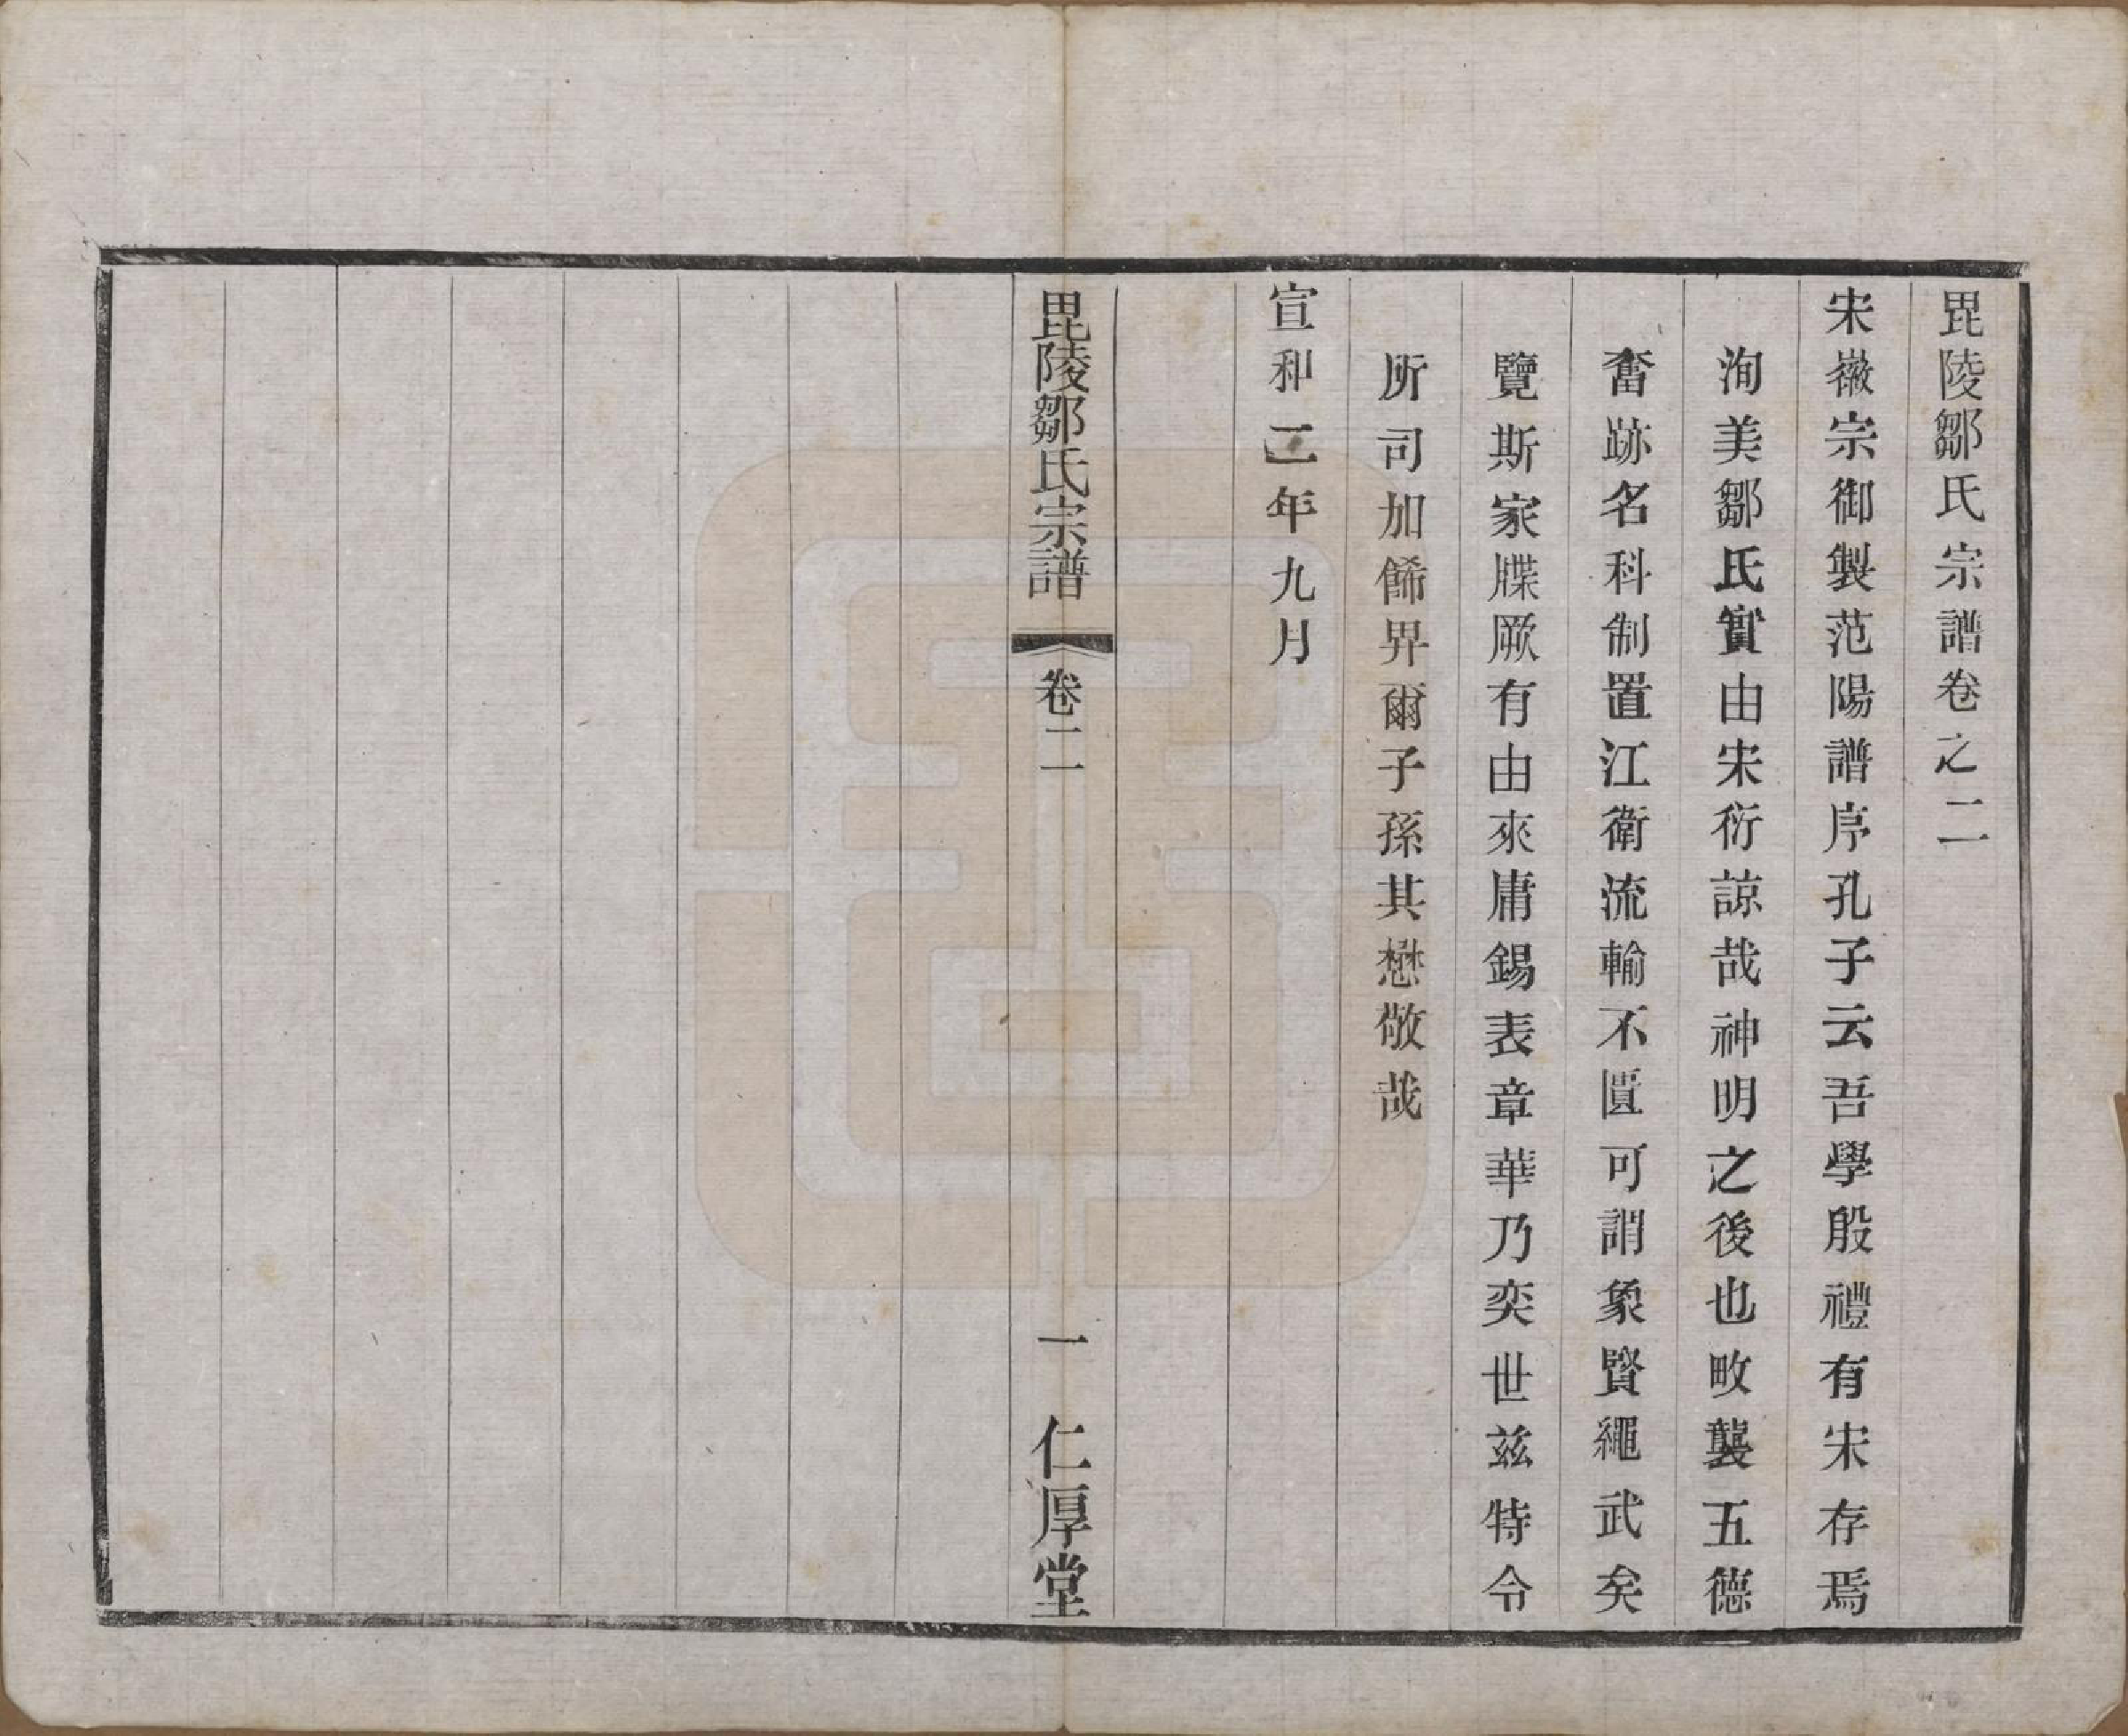 毘陵鄒氏宗譜卷之二
宋徽宗御製范陽譜序孔子云吾學殷禮有宋存焉
洵美鄒氏實由宋衍諒哉神明之後也畋襲五德
奮跡名科制置江衛流輸不匱可謂象賢繩武矣
覽斯家牒厥有由來庸錫表章華乃奕世茲特令
所司加餙畀爾子孫其懋敬哉
宣和二年九月
毘陵鄒氏宗譜 卷二 一 仁厚堂